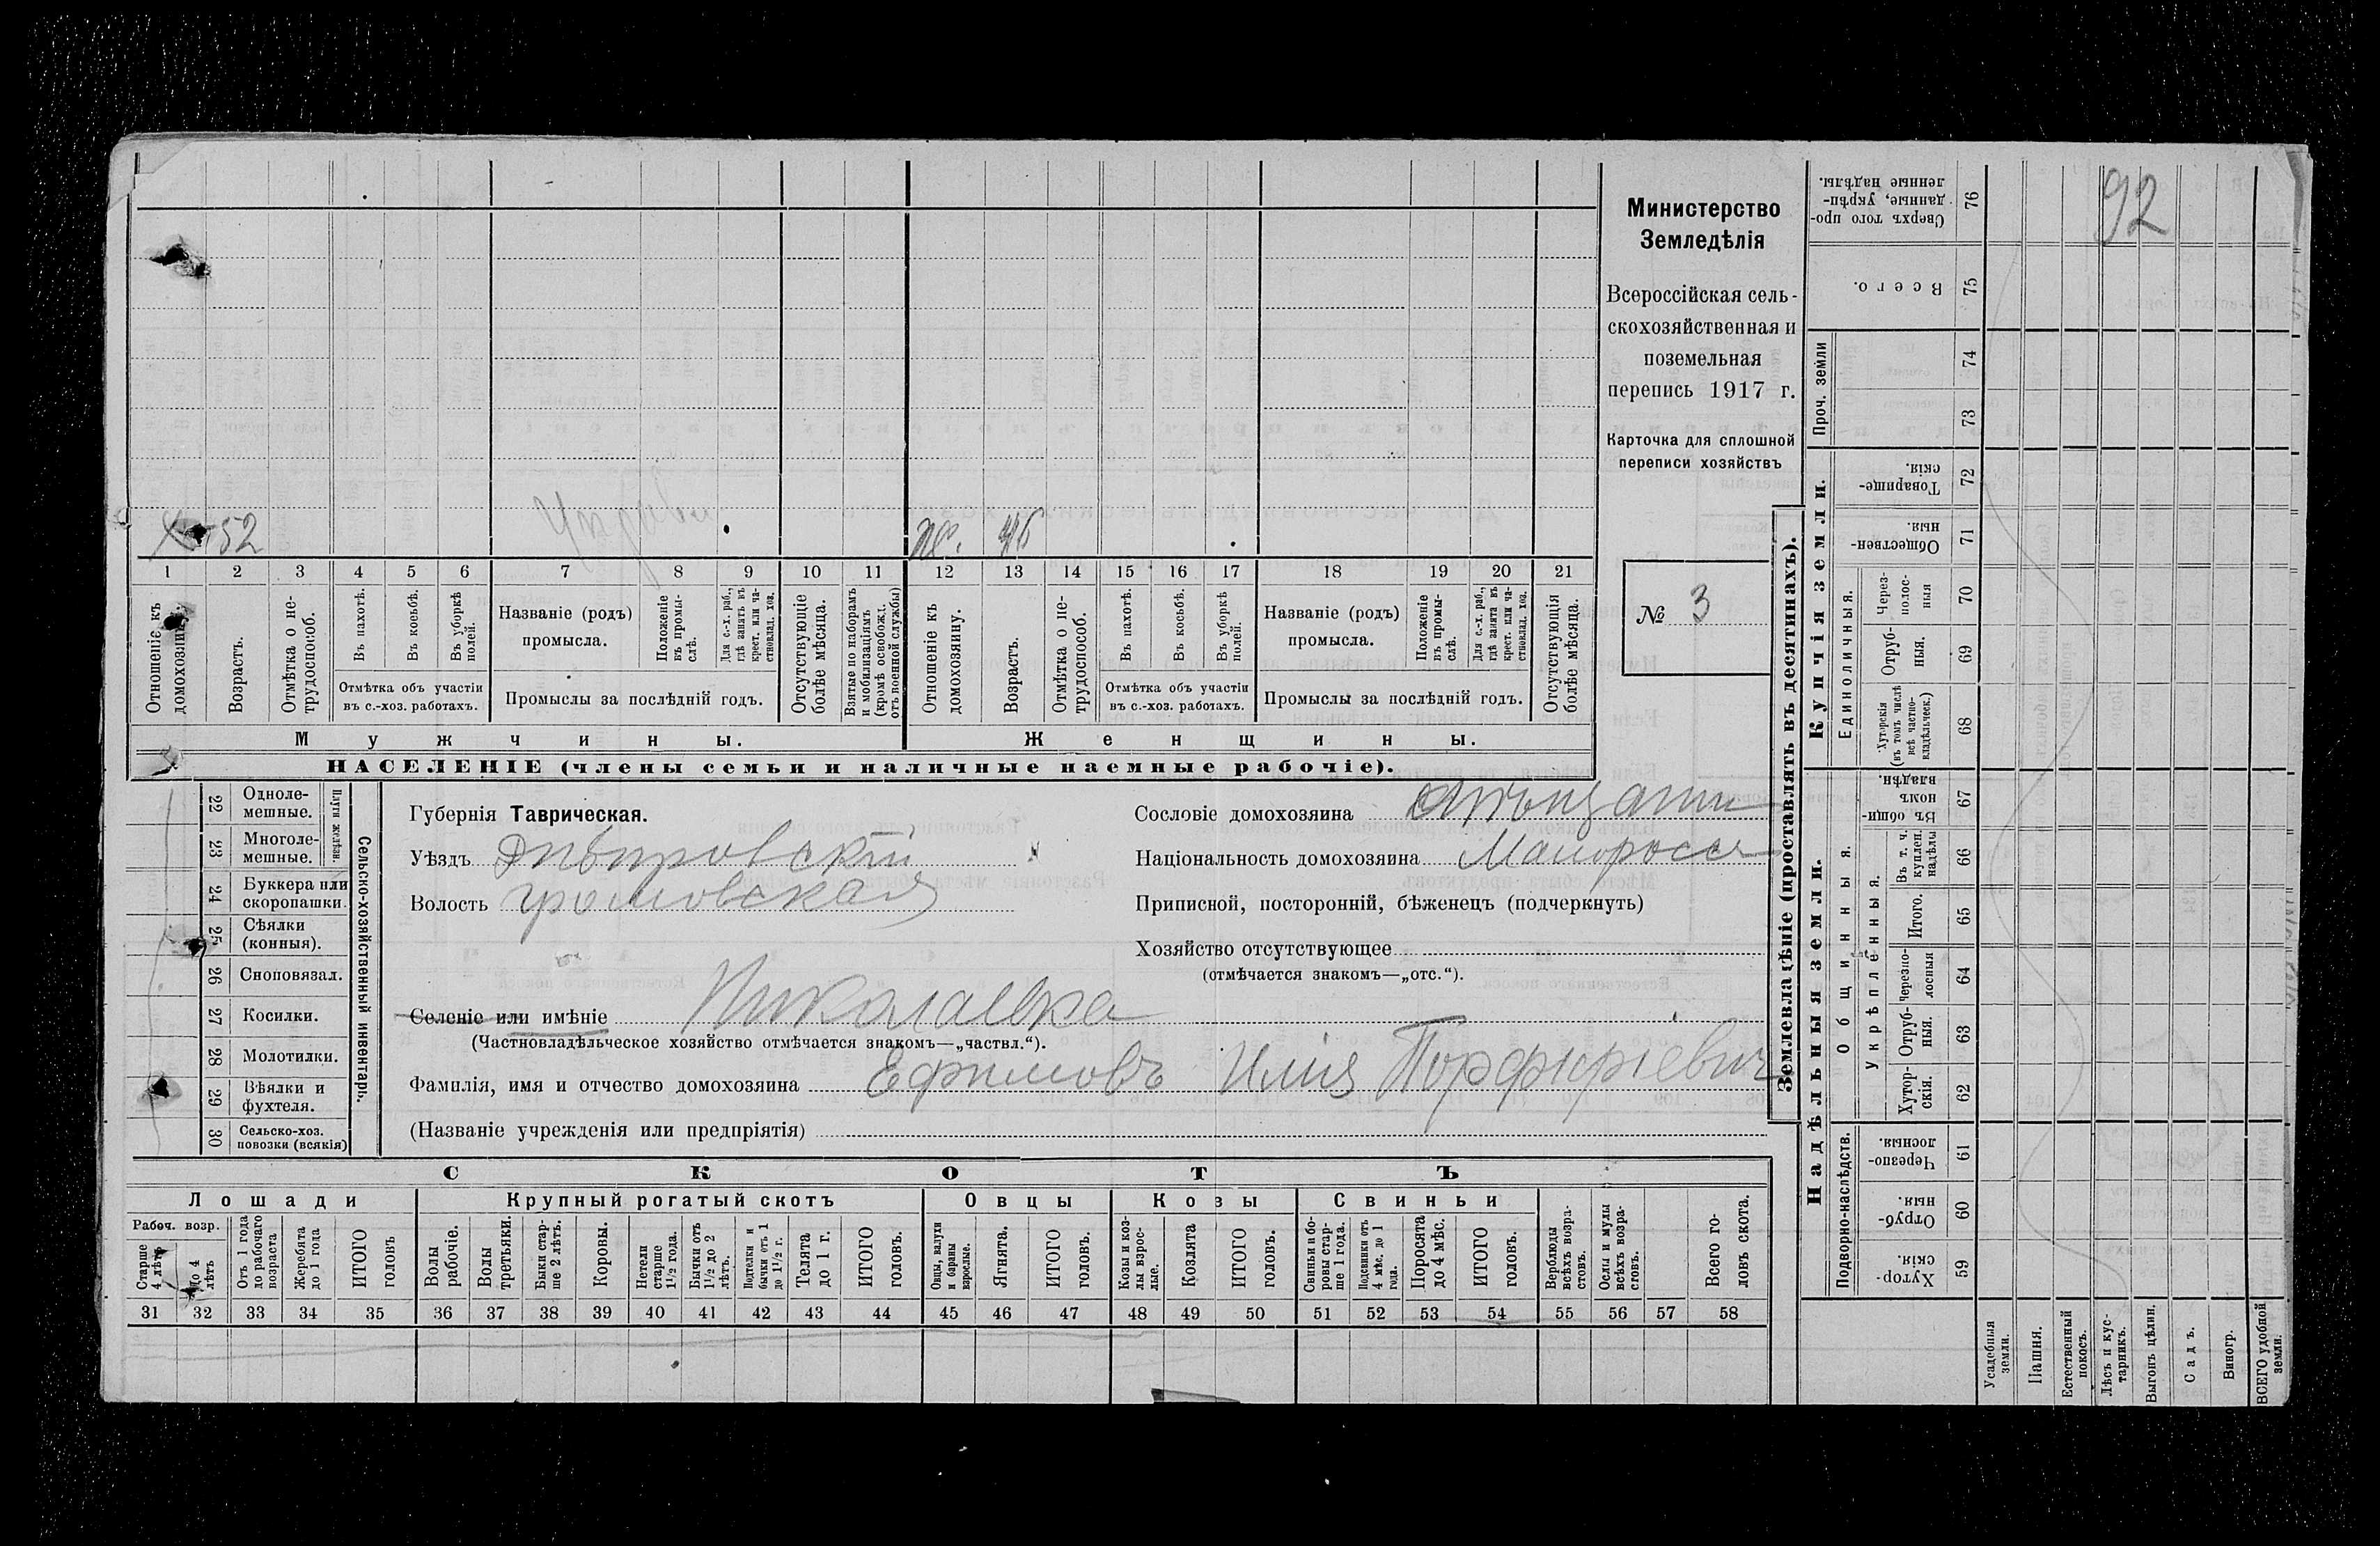 92
Министерство
Земледѣлія
Всероссійская сель-
скохозяйственная и
поземельная
перепись 1917 г.
Карточка для сплошной
переписи хозяйствъ
№ 3
52
ж. 46
1 2 3 4 5 6 7 8 9 10 11 12 13 14 15 16 17 18 19 20 21
Отношеніе къ домохозяину.
Возрастъ.
Отмѣтка о не-трудоспособ.
Въ пахотѣ.
Въ косьбѣ.
Въ уборкѣ полей.
Отмѣтка объ участіи
въ с.-хоз. работахъ.
Названіе (родъ)
промысла.
Положеніе въ промы-слѣ.
Для с.-х. раб., гдѣ занятъ въ крест. или ча-стновлад. хоз.
Промыслы за послѣдній годъ.
Отсутствующіе болѣе мѣсяца.
Взятые по наборамъ и мобилизаціямъ (кромѣ освобожд. отъ военной службы)
Отношеніе къ домохозяину.
Возрастъ.
Отмѣтка о не-трудоспособ.
Въ пахотѣ.
Въ косьбѣ.
Въ уборкѣ полей.
Отмѣтка объ участіи
въ с.-хоз. работахъ.
Названіе (родъ)
промысла.
Положеніе въ промы-слѣ.
Для с.-х. раб., гдѣ занята въ крест. или ча-стновлад. хоз.
Промыслы за послѣдній годъ.
Отсутствующія болѣе мѣсяца.
Мужчины. Женщины.
НАСЕЛЕНІЕ (члены семьи и наличные наемные рабочіе).
Сельско-хозяйственный инвентарь.
Плуги желѣзн.
22 Одноле-мешные.
23 Многоле-мешные.
24 Буккера или скоропашки.
25 Сѣялки (конныя).
26 Сноповязал.
27 Косилки.
28 Молотилки.
29 Вѣялки и фухтеля.
30 Сельско-хоз. повозки (всякія)
Губернія Таврическая.
Уѣздъ Днѣпровскій
Волость Громовская
Сословіе домохозяина
Національность домохозяина Малороссъ
Приписной, посторонній, бѣженецъ (подчеркнуть)
Хозяйство отсутствующее
(отмѣчается знакомъ—„отс.“).
Селеніе или имѣніе Николаевка
(Частновладѣльческое хозяйство отмѣчается знакомъ—„частвл.“).
Фамилія, имя и отчество домохозяина Ефимовъ Илія Порфиріевич
(Названіе учрежденія или предпріятія)
СКОТЪ
Лошади Крупный рогатый скотъ Овцы Козы Свиньи
Рабоч. возр.
Старше 4 лѣтъ
До 4 лѣтъ
Отъ 1 года до рабочаго возраста
Жеребята до 1 года
ИТОГО головъ
Волы рабочіе.
Волы третьяки.
Быки стар-ше 2 лѣтъ.
Коровы.
Нетели старше 1½ года.
Бычки отъ 1½ до 2 лѣтъ.
Подтелки и бычки отъ 1 до 1½ г.
Телята до 1 г.
ИТОГО головъ.
Овцы, валухи и бараны взрослые.
Ягнята.
ИТОГО головъ.
Козы и коз-лы взрос-лые.
Козлята
ИТОГО головъ.
Свиньи и бо-ровы стар-ше 1 года.
Подсвинки отъ 4 мѣс. до 1 года.
Поросята до 4 мѣс.
ИТОГО головъ.
Верблюды всѣхъ возра-стовъ.
Ослы и мулы всѣхъ возра-стовъ.
Всего го-ловъ скота.
31 32 33 34 35 36 37 38 39 40 41 42 43 44 45 46 47 48 49 50 51 52 53 54 55 56 57 58
Землевладѣніе (проставлять въ десятинахъ).
Купчія земли.
Надѣльныя земли.
Сверхъ того про-данные, укрѣп-ленные надѣлы. 76
Всего. 75
Проч. земли
74
73
Товарище-скія. 72
Обществен-ныя. 71
Единоличныя.
Через-полос-ныя 70
Отруб-ныя. 69
Хуторскія (въ томъ числѣ всѣ частно-владѣльческ.) 68
Общинныя.
Въ общин-номъ владѣн. 67
Укрѣпленныя.
Въ т. ч. куплен. надѣлы 66
Итого. 65
Черезпо-лосныя 64
Отруб-ныя. 63
Хутор-скія. 62
Подворно-наслѣдств.
Черезпо-лосныя. 61
Отруб-ныя. 60
Хутор-скія. 59
Усадебныя земли.
Пашня.
Естественный покосъ.
Лѣсъ и кус-тарникъ.
Выгонъ цѣлин.
Садъ.
Виногр.
ВСЕГО удобной земли.